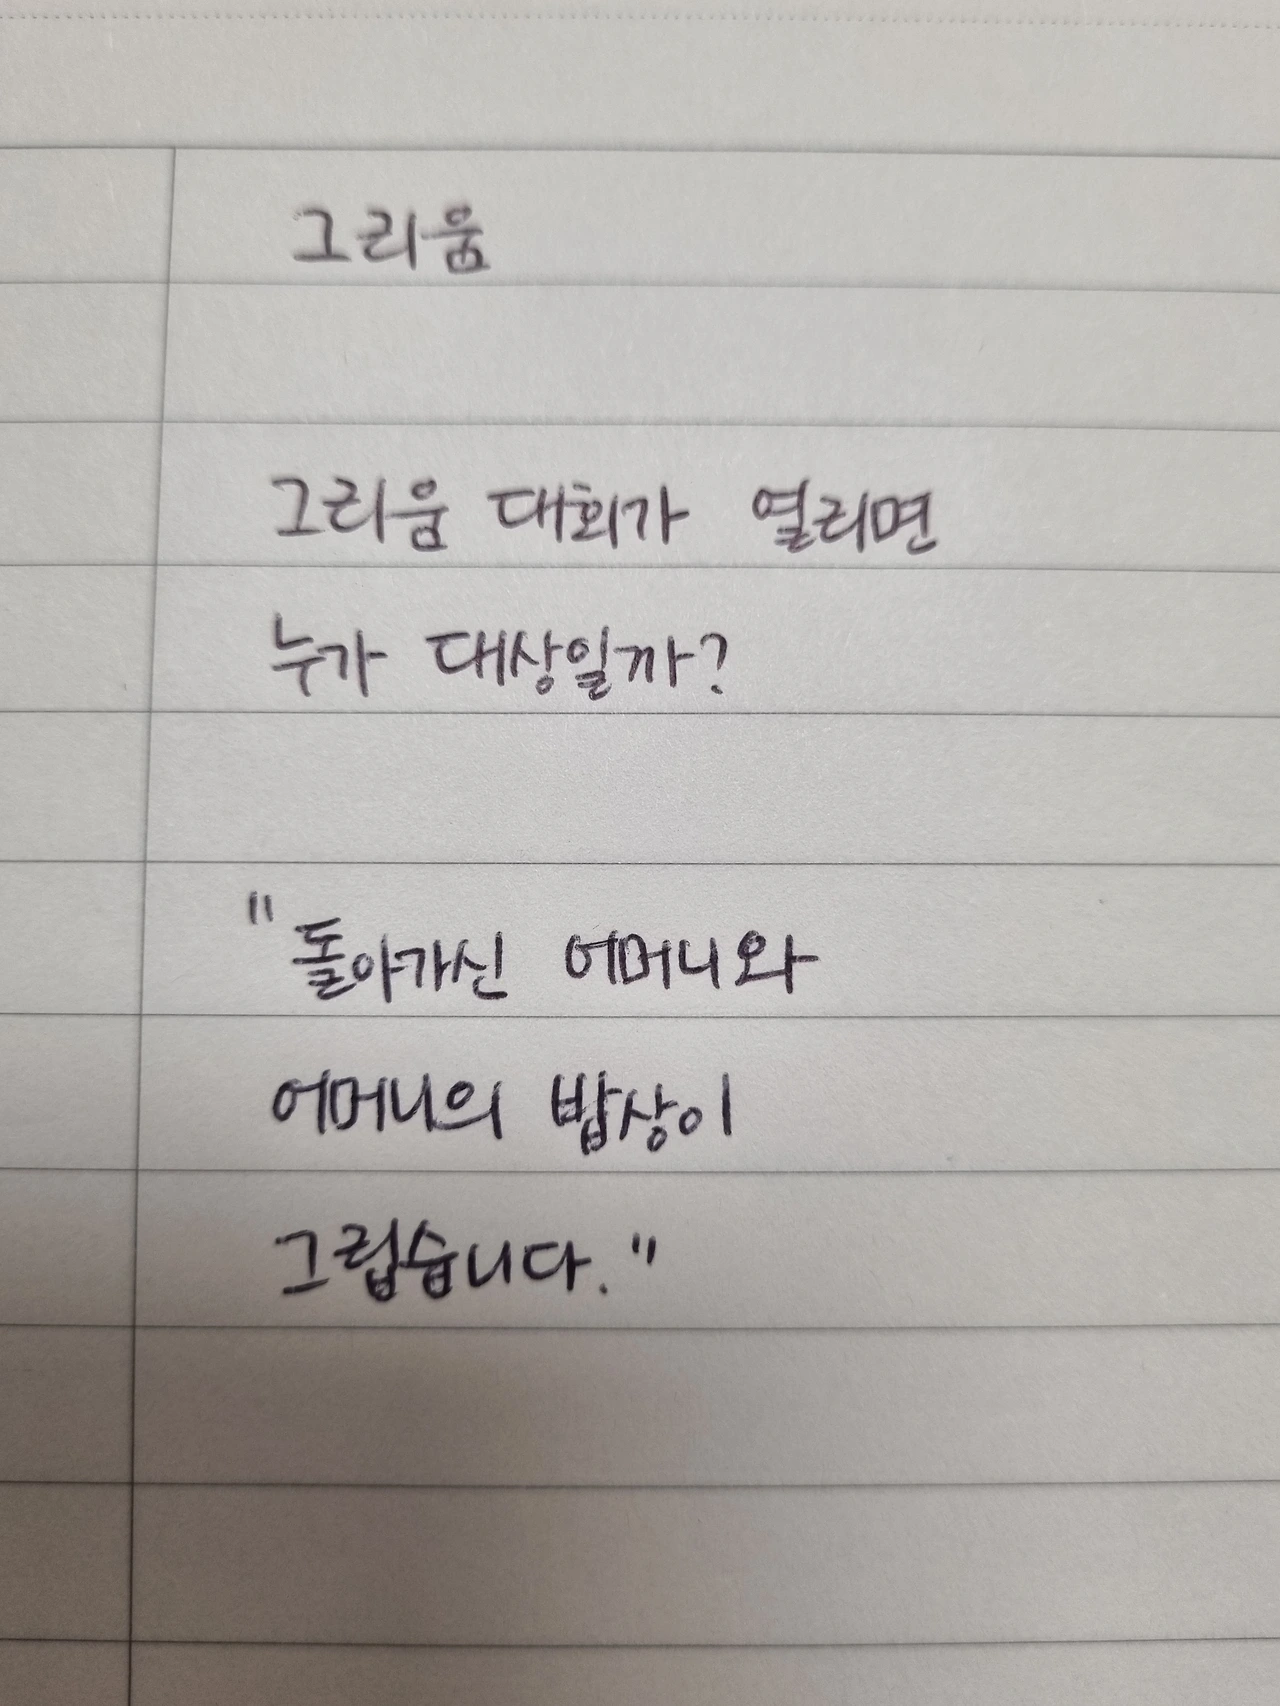 그리움
그리움 대회가 열리면
누가 대상일까?
"돌아가신 어머니와
어머니의 밥상이
그립습니다."